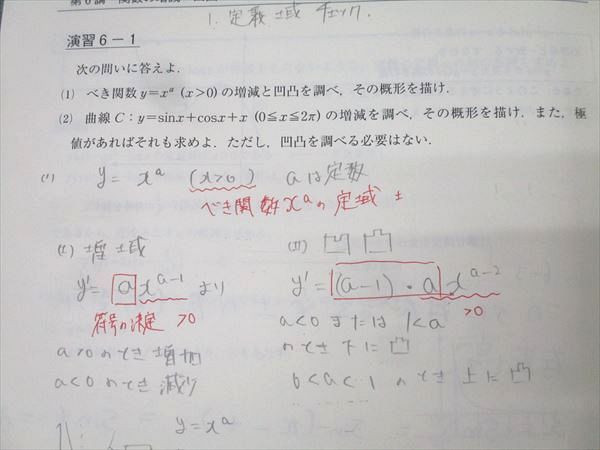 1. 定義域 チェック.
演習6－1
次の問いに答えよ.
(1) べき関数 y=xᵃ (x>0) の増減と凹凸を調べ，その概形を描け.
(2) 曲線 C：y=sinx+cosx+x (0≦x≦2π) の増減を調べ，その概形を描け．また，極
値があればそれも求めよ．ただし，凹凸を調べる必要はない.
(1) y= xᵃ (x>0) aは定数
べき関数xᵃの定域
y'= a xᵃ⁻¹ より
符号の決定 >0
a>0のとき増加
a<0のとき減少
(ii) 凹凸
y'= (a-1)・a xᵃ⁻²
>0
a<0 または 1<a
のとき 下に凸
0<a<1 のとき 上に凸
y=xᵃ